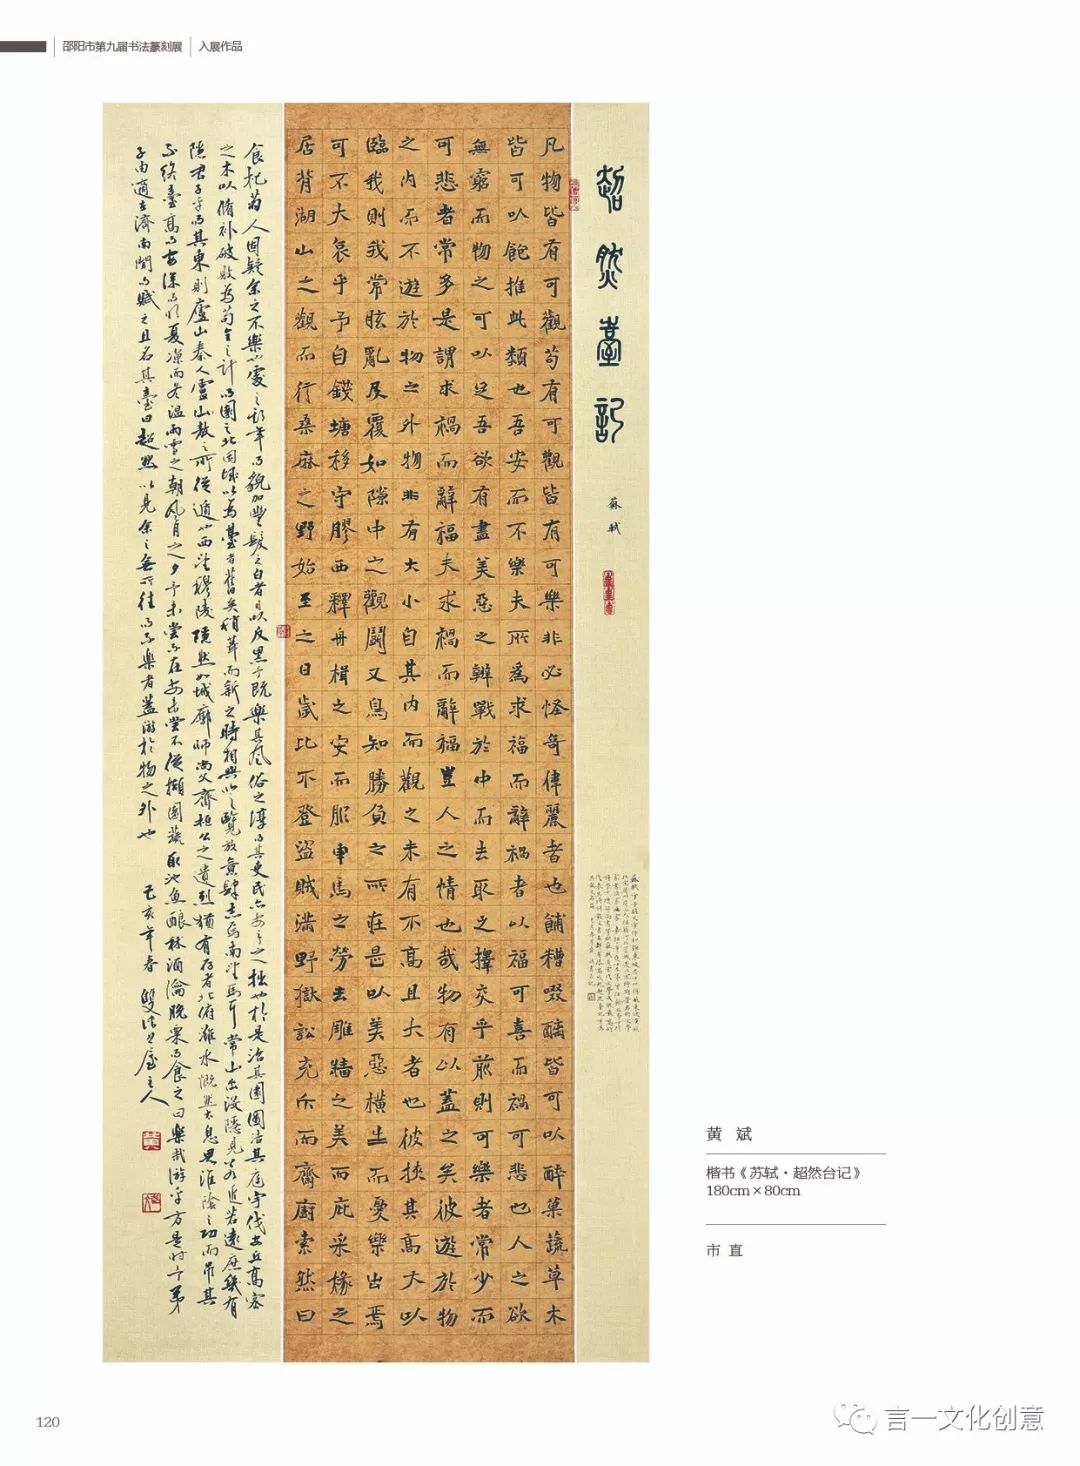 邵阳市第九届书法篆刻展 入展作品
超然臺記
蘇軾
凡物皆有可觀苟有可觀皆有可樂非必怪奇偉麗者也餔糟啜醨皆可以醉菓蔬草木
皆可以飽推此類也吾安而不樂夫所為求福而辭禍者以福可喜而禍可悲也人之欲
無窮而物之可以足吾欲有盡美惡之辨戰於中而去取之擇交乎前則可樂者常少而
可悲者常多是謂求禍而辭福夫求禍而辭福豈人之情也哉物有以蓋之矣彼遊於物
之內而不遊於物之外物非有大小自其內而觀之未有不高且大者也彼挾其高大以
臨我則我常眩亂反覆如隙中之觀鬪又烏知勝負之所在是以美惡橫生而憂樂出焉
可不大哀乎予自錢塘移守膠西釋舟楫之安而服車馬之勞去雕牆之美而庇采椽之
居背湖山之觀而行桑麻之野始至之日歲比不登盜賊滿野獄訟充斥而齋廚索然日
食杞菊人固疑余之不樂也處之期年而貌加豐髮之白者日以反黑予既樂其風俗之淳而其吏民亦安予之拙也於是治其園圃潔其庭宇伐安丘高密
之木以脩補破敗為苟全之計而園之北因城以為臺者舊矣稍葺而新之時相與登覽放意肆志焉南望馬耳常山出沒隱見若近若遠庶幾有
隱君子乎而其東則廬山秦人盧山敖之所從遁也西望穆陵隱然如城郭師尚父齊桓公之遺烈猶有存者北俯濰水慨然太息思淮陰之功而弔其
不終臺高而安深而明夏涼而冬溫雨雪之朝風月之夕予未嘗不在客未嘗不從擷園蔬取池魚釀秫酒瀹脫粟而食之曰樂哉游乎方是時予弟
子由適在濟南聞而賦之且名其臺曰超然以見余之無所往而不樂者蓋游於物之外也 己亥年春 雙清 主人
黄 斌
楷书《苏轼·超然台记》
180cm×80cm
市 直
120
言一文化创意